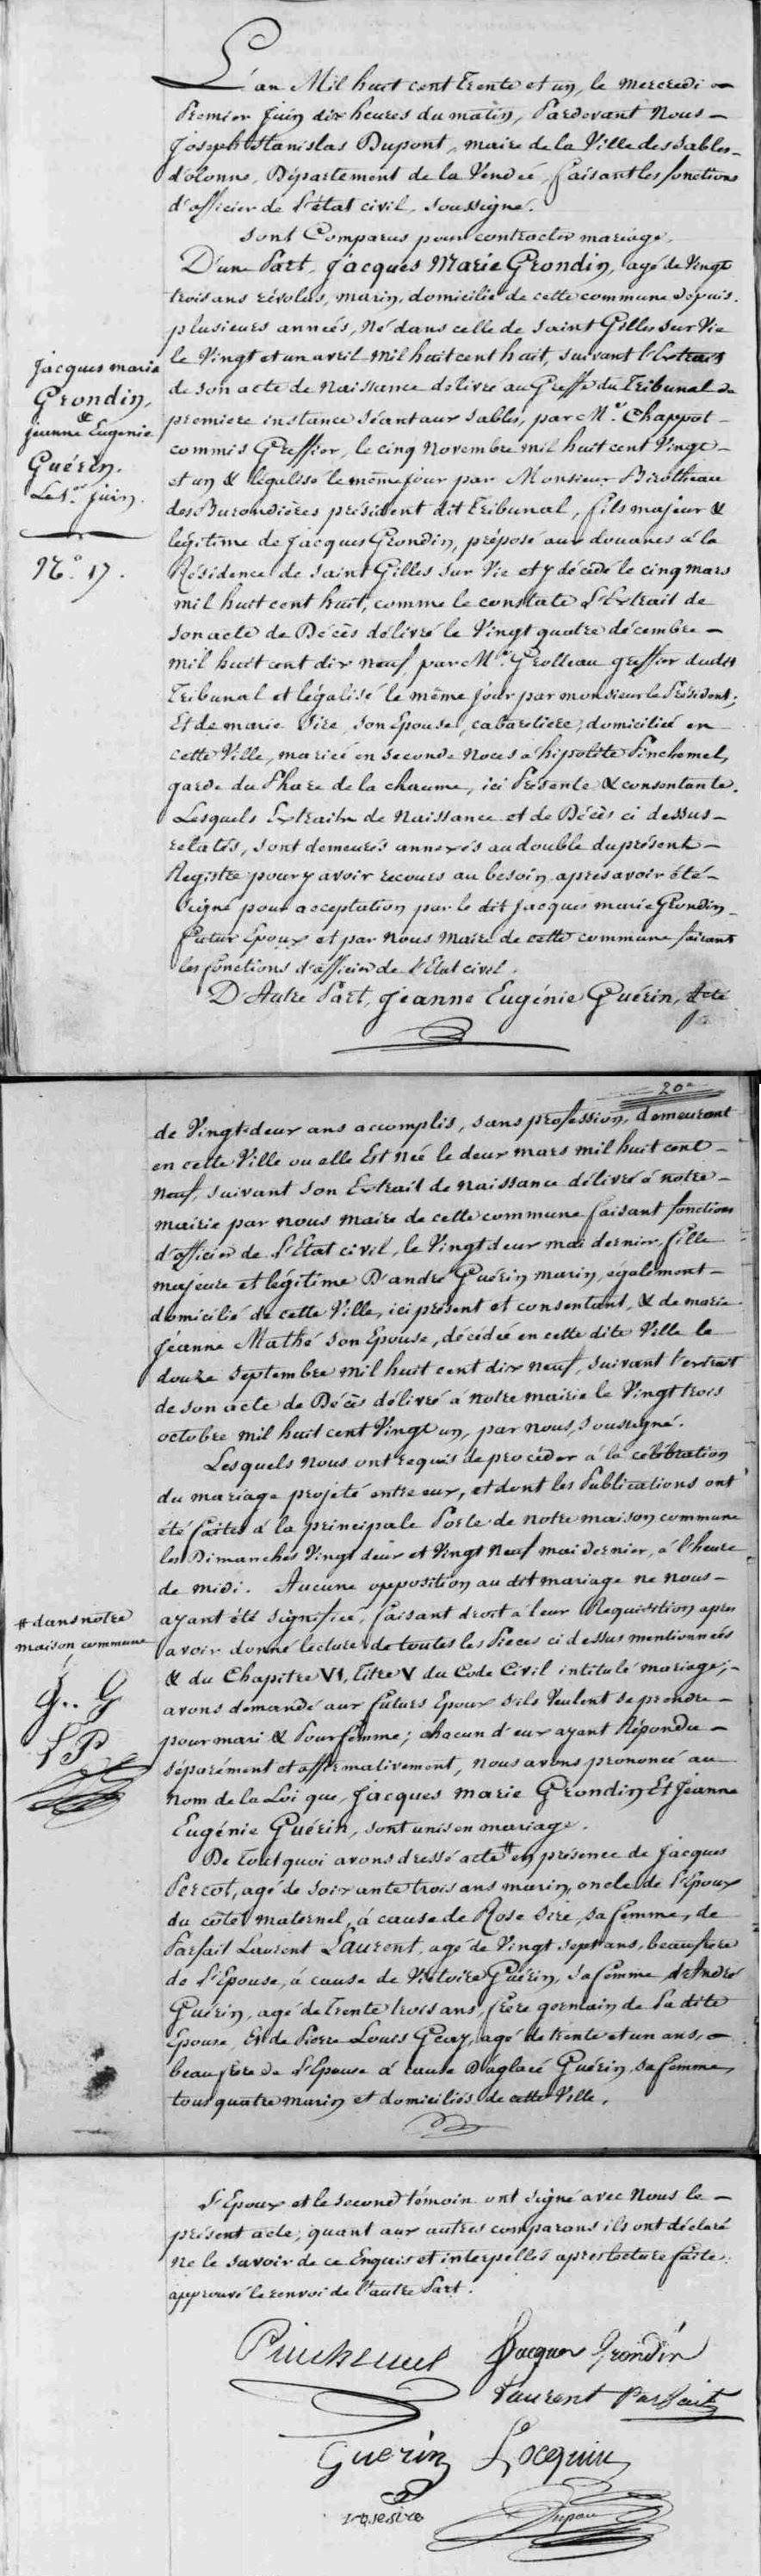 L'an Mil huit cent trente et un, le mercredi
Premier Juin dix heures du matin, Pardevant Nous
Joseph Stanislas Dupont, maire de la Ville des Sables
d'olonne, Département de la Vendeé, faisant les fonctions
d'officier de l'état civil, soussigné.
Sont Comparus pour contracter mariage,
D'une Part, Jacques Marie Grondin, agé de Vingt
trois ans révolus, marin, domicilié de cette commune depuis
plusieurs anneés, Né dans celle de Saint Gilles sur Vie
Jacques marie
Grondin,
&
jeanne Eugenie
Guérin.
Le 1.er juin.
N.o 17.
le Vingt et un avril mil huit cent huit, suivant l'Extrait
de son acte de Naissance délivré au Greffe du Tribunal de
premiere instance séant aux Sables, par M.r Chappot
commis Greffier, le cinq Novembre mil huit cent Vingt
et un & légalisé le même jour par Monsieur Birotheau
des Burondières président dit Tribunal, fils majeur &
légitime de Jacques Grondin, préposé aux douanes à la
Résidence de Saint Gilles sur Vie et y décédé le cinq mars
mil huit cent huit, comme le constate l'Extrait de
son acte de Décès délivré le Vingt quatre décembre
mil huit cent dix neuf, par M.r Grolleau greffier dudit
Tribunal et légalisé le même jour par monsieur le Président;
Et de marie Sire, son Epouse, cabaretiere, domiciliée en
cette Ville, marieé en seconde Noces a hipolite Pinchemel,
garde du Phare de la chaume, ici Présente & consentante.
Lesquels Extraits de Naissance et de Décès ci dessus
relatés, sont demeurés annexés au double du présent
Registre pour y avoir recours au besoin, apres avoir été
Signé pour acceptation par le dit Jacques marie Grondin
futur Epoux et par Nous Maire de cette commune faisant
les fonctions d'officier de l'Etat civil.
D'Autre Part, Jeanne Eugénie Guérin, Agée
20
de Vingt deux ans accomplis, sans profession, demeurant
en cette Ville ou elle Est Née le deux mars mil huit cent
Neuf, suivant son Extrait de naissance délivré à notre
mairie par nous maire de cette commune faisant fonctions
d'officier de l'Etat civil, le Vingt deux mai dernier, fille
majeure et légitime D'andré Guérin marin, également
domicilié de cette Ville, ici présent et consentant, & de marie
Jeanne Mathé son Epouse, décédeé en cette dite Ville le
douze Septembre mil huit cent dix neuf, suivant l'extrait
de son acte de Décès délivré à notre mairie le Vingt trois
octobre mil huit cent Vingt un, par nous, soussigné.
Lesquels nous ont requis de procéder à la célébration
du mariage projeté entre eux, et dont les Publications ont
été faites à la principale Porte de notre maison commune
les Dimanches Vingt deux et Vingt Neuf mai dernier, à l'heure
de midi. Aucune opposition au dit mariage ne nous
ayant été signifieé, faisant droit à leur Requisition apres
avoir donné lecture de toutes les Pieces ci dessus mentionneés
& du Chapitre VI, titre V du Code Civil intitulé mariage;
avons demandé aux futurs Epoux s'ils Veulent se prendre
pour mari & Pour femme; chacun d'eux ayant Répondu
séparément et affirmativement, Nous avons prononcé au
nom de la Loi que, Jacques marie Grondin Et Jeanne
Eugénie Guérin, sont unis en mariage.
# dans notre
maison commune
J.. G
De tout quoi avons dressé acte # en présence de Jacques
Percot, agé de soixante trois ans marin, oncle de l'Epoux
du coté maternel, à cause de Rose Sire, sa femme, de
Parfait Laurent Laurent, agé de Vingt sept ans, beaufrere
de l'Epouse, à cause de Victoire Guérin, sa femme, de André
Guérin, agé de trente trois ans, frère germain de la dite
Epouse, Et de Pierre Louis Geay, agé de trente et un ans,
beaufrere de l'Epouse à cause d'aglaé Guérin, sa femme,
tous quatre marin et domiciliés de cette Ville.
L'Epoux et le second témoin ont signé avec Nous le
présent acte; quant aux autres comparans ils ont déclaré
ne le savoir de ce Enquis et interpellés apres lecture faite.
approuvé le renvoi de l'autre Part.
Pinchemel Jacques Grondin
Laurent Parfait
Guerin Locquin
rosesire Dupont